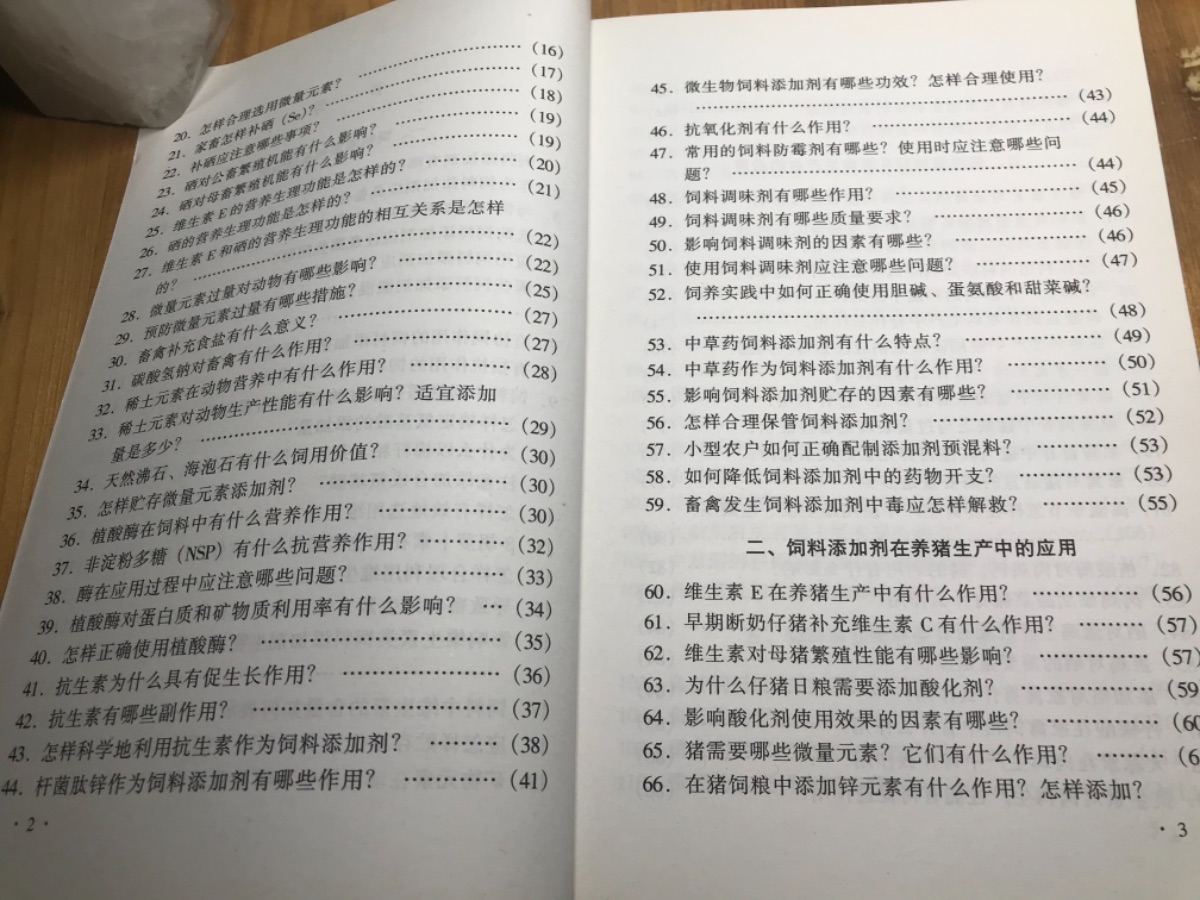 20. 怎样合理选用微量元素? ……………… (16)
21. 家畜怎样补硒 (Se)? ……………… (17)
22. 补硒应注意哪些事项? ……………… (18)
23. 硒对公畜繁殖机能有什么影响? ……………… (19)
24. 硒对母畜繁殖机能有什么影响? ……………… (19)
25. 维生素 E 的营养生理功能是怎样的? ………… (20)
26. 硒的营养生理功能是怎样的? ……………… (21)
27. 维生素 E 和硒的营养生理功能的相互关系是怎样
的? ……………… (22)
28. 微量元素过量对动物有哪些影响? ………… (22)
29. 预防微量元素过量有哪些措施? ………… (25)
30. 畜禽补充食盐有什么意义? ……………… (27)
31. 碳酸氢钠对畜禽有什么作用? ……………… (27)
32. 稀土元素在动物营养中有什么作用? ………… (28)
33. 稀土元素对动物生产性能有什么影响? 适宜添加
量是多少? ……………… (29)
34. 天然沸石、海泡石有什么饲用价值? ………… (30)
35. 怎样贮存微量元素添加剂? ……………… (30)
36. 植酸酶在饲料中有什么营养作用? ………… (30)
37. 非淀粉多糖 (NSP) 有什么抗营养作用? ……… (32)
38. 酶在应用过程中应注意哪些问题? ………… (33)
39. 植酸酶对蛋白质和矿物质利用率有什么影响? … (34)
40. 怎样正确使用植酸酶? ……………… (35)
41. 抗生素为什么具有促生长作用? ……………… (36)
42. 抗生素有哪些副作用? ……………… (37)
43. 怎样科学地利用抗生素作为饲料添加剂? ……… (38)
44. 杆菌肽锌作为饲料添加剂有哪些作用? ………… (41)
· 2 ·
45. 微生物饲料添加剂有哪些功效? 怎样合理使用?
……………… (43)
46. 抗氧化剂有什么作用? ……………… (44)
47. 常用的饲料防霉剂有哪些? 使用时应注意哪些问
题? ……………… (44)
48. 饲料调味剂有哪些作用? ……………… (45)
49. 饲料调味剂有哪些质量要求? ……………… (46)
50. 影响饲料调味剂的因素有哪些? ……………… (46)
51. 使用饲料调味剂应注意哪些问题? ………… (47)
52. 饲养实践中如何正确使用胆碱、蛋氨酸和甜菜碱?
……………… (48)
53. 中草药饲料添加剂有什么特点? ……………… (49)
54. 中草药作为饲料添加剂有什么作用? ………… (50)
55. 影响饲料添加剂贮存的因素有哪些? ………… (51)
56. 怎样合理保管饲料添加剂? ……………… (52)
57. 小型农户如何正确配制添加剂预混料? ……… (53)
58. 如何降低饲料添加剂中的药物开支? ………… (53)
59. 畜禽发生饲料添加剂中毒应怎样解救? ……… (55)
二、饲料添加剂在养猪生产中的应用
60. 维生素 E 在养猪生产中有什么作用? ………… (56)
61. 早期断奶仔猪补充维生素 C 有什么作用? ……… (57)
62. 维生素对母猪繁殖性能有哪些影响? ………… (57)
63. 为什么仔猪日粮需要添加酸化剂? ………… (59
64. 影响酸化剂使用效果的因素有哪些? ………… (60
65. 猪需要哪些微量元素? 它们有什么作用? ……… (6
66. 在猪饲粮中添加锌元素有什么作用? 怎样添加?
· 3